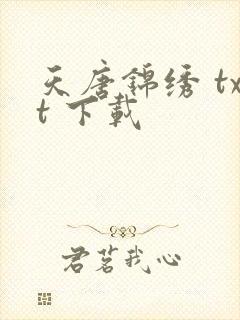 天唐锦绣 tx
t 下載
君茗我心